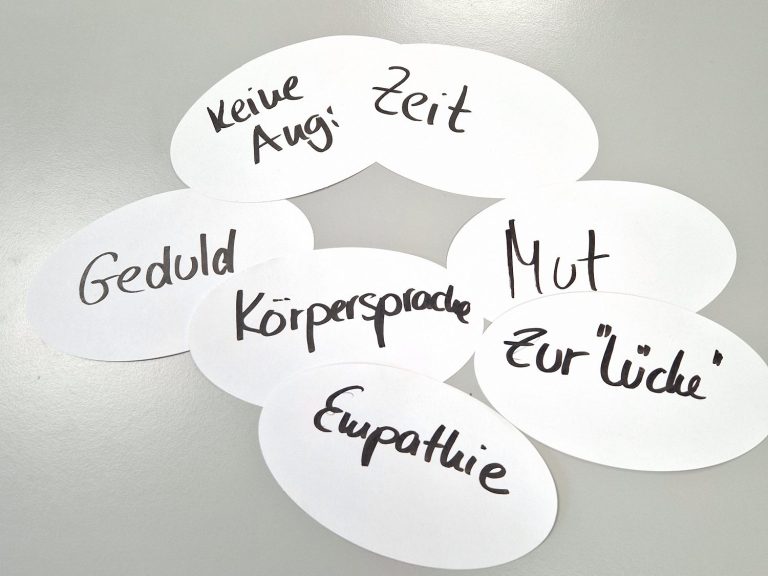 Keine
Aug:
Zeit
Geduld
Körpersprache
Mut
Zur "Lücke"
Empathie